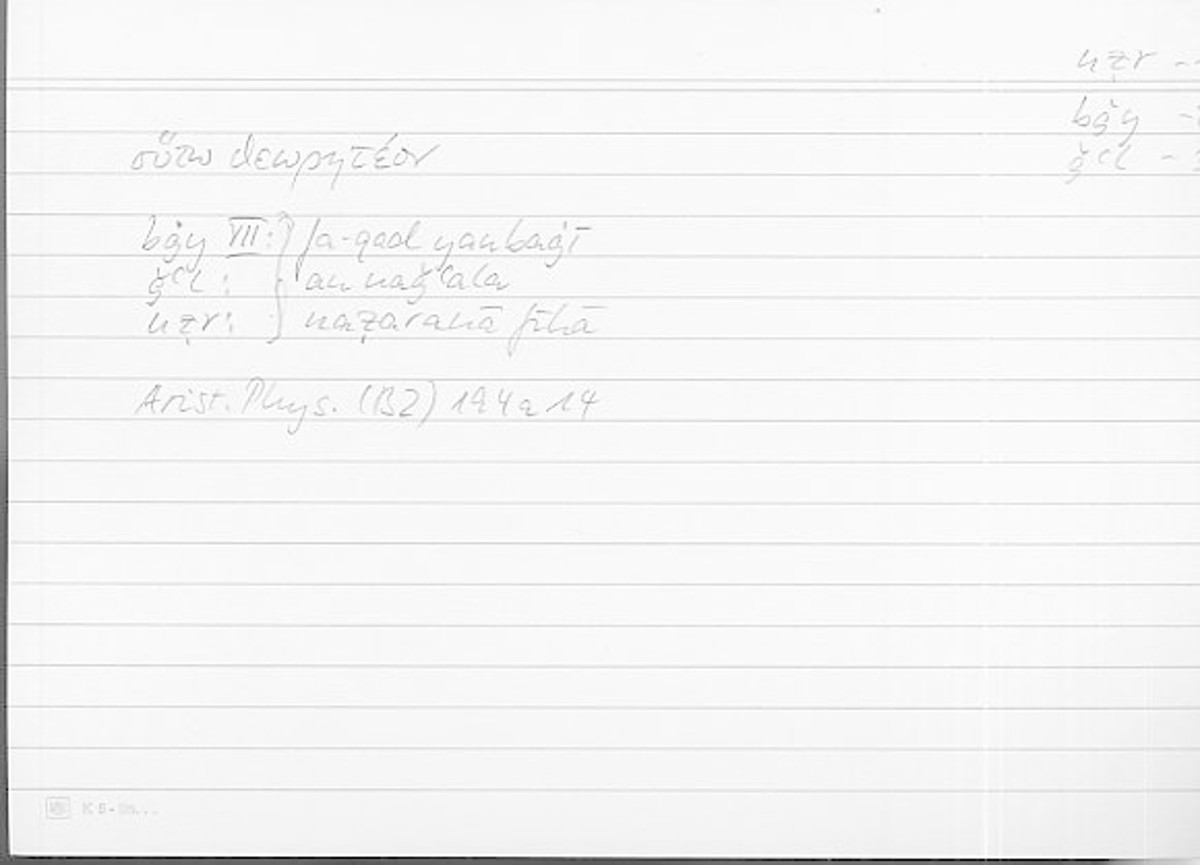 nẓr -
bġy -
ǧʿl -
οὕτω θεωρητέον
bġy VII: } fa-qad yanbaġī
ǧʿl : } an naǧʿala
nẓr: } naẓaranā fīhā
Arist. Phys. (B2) 194a14